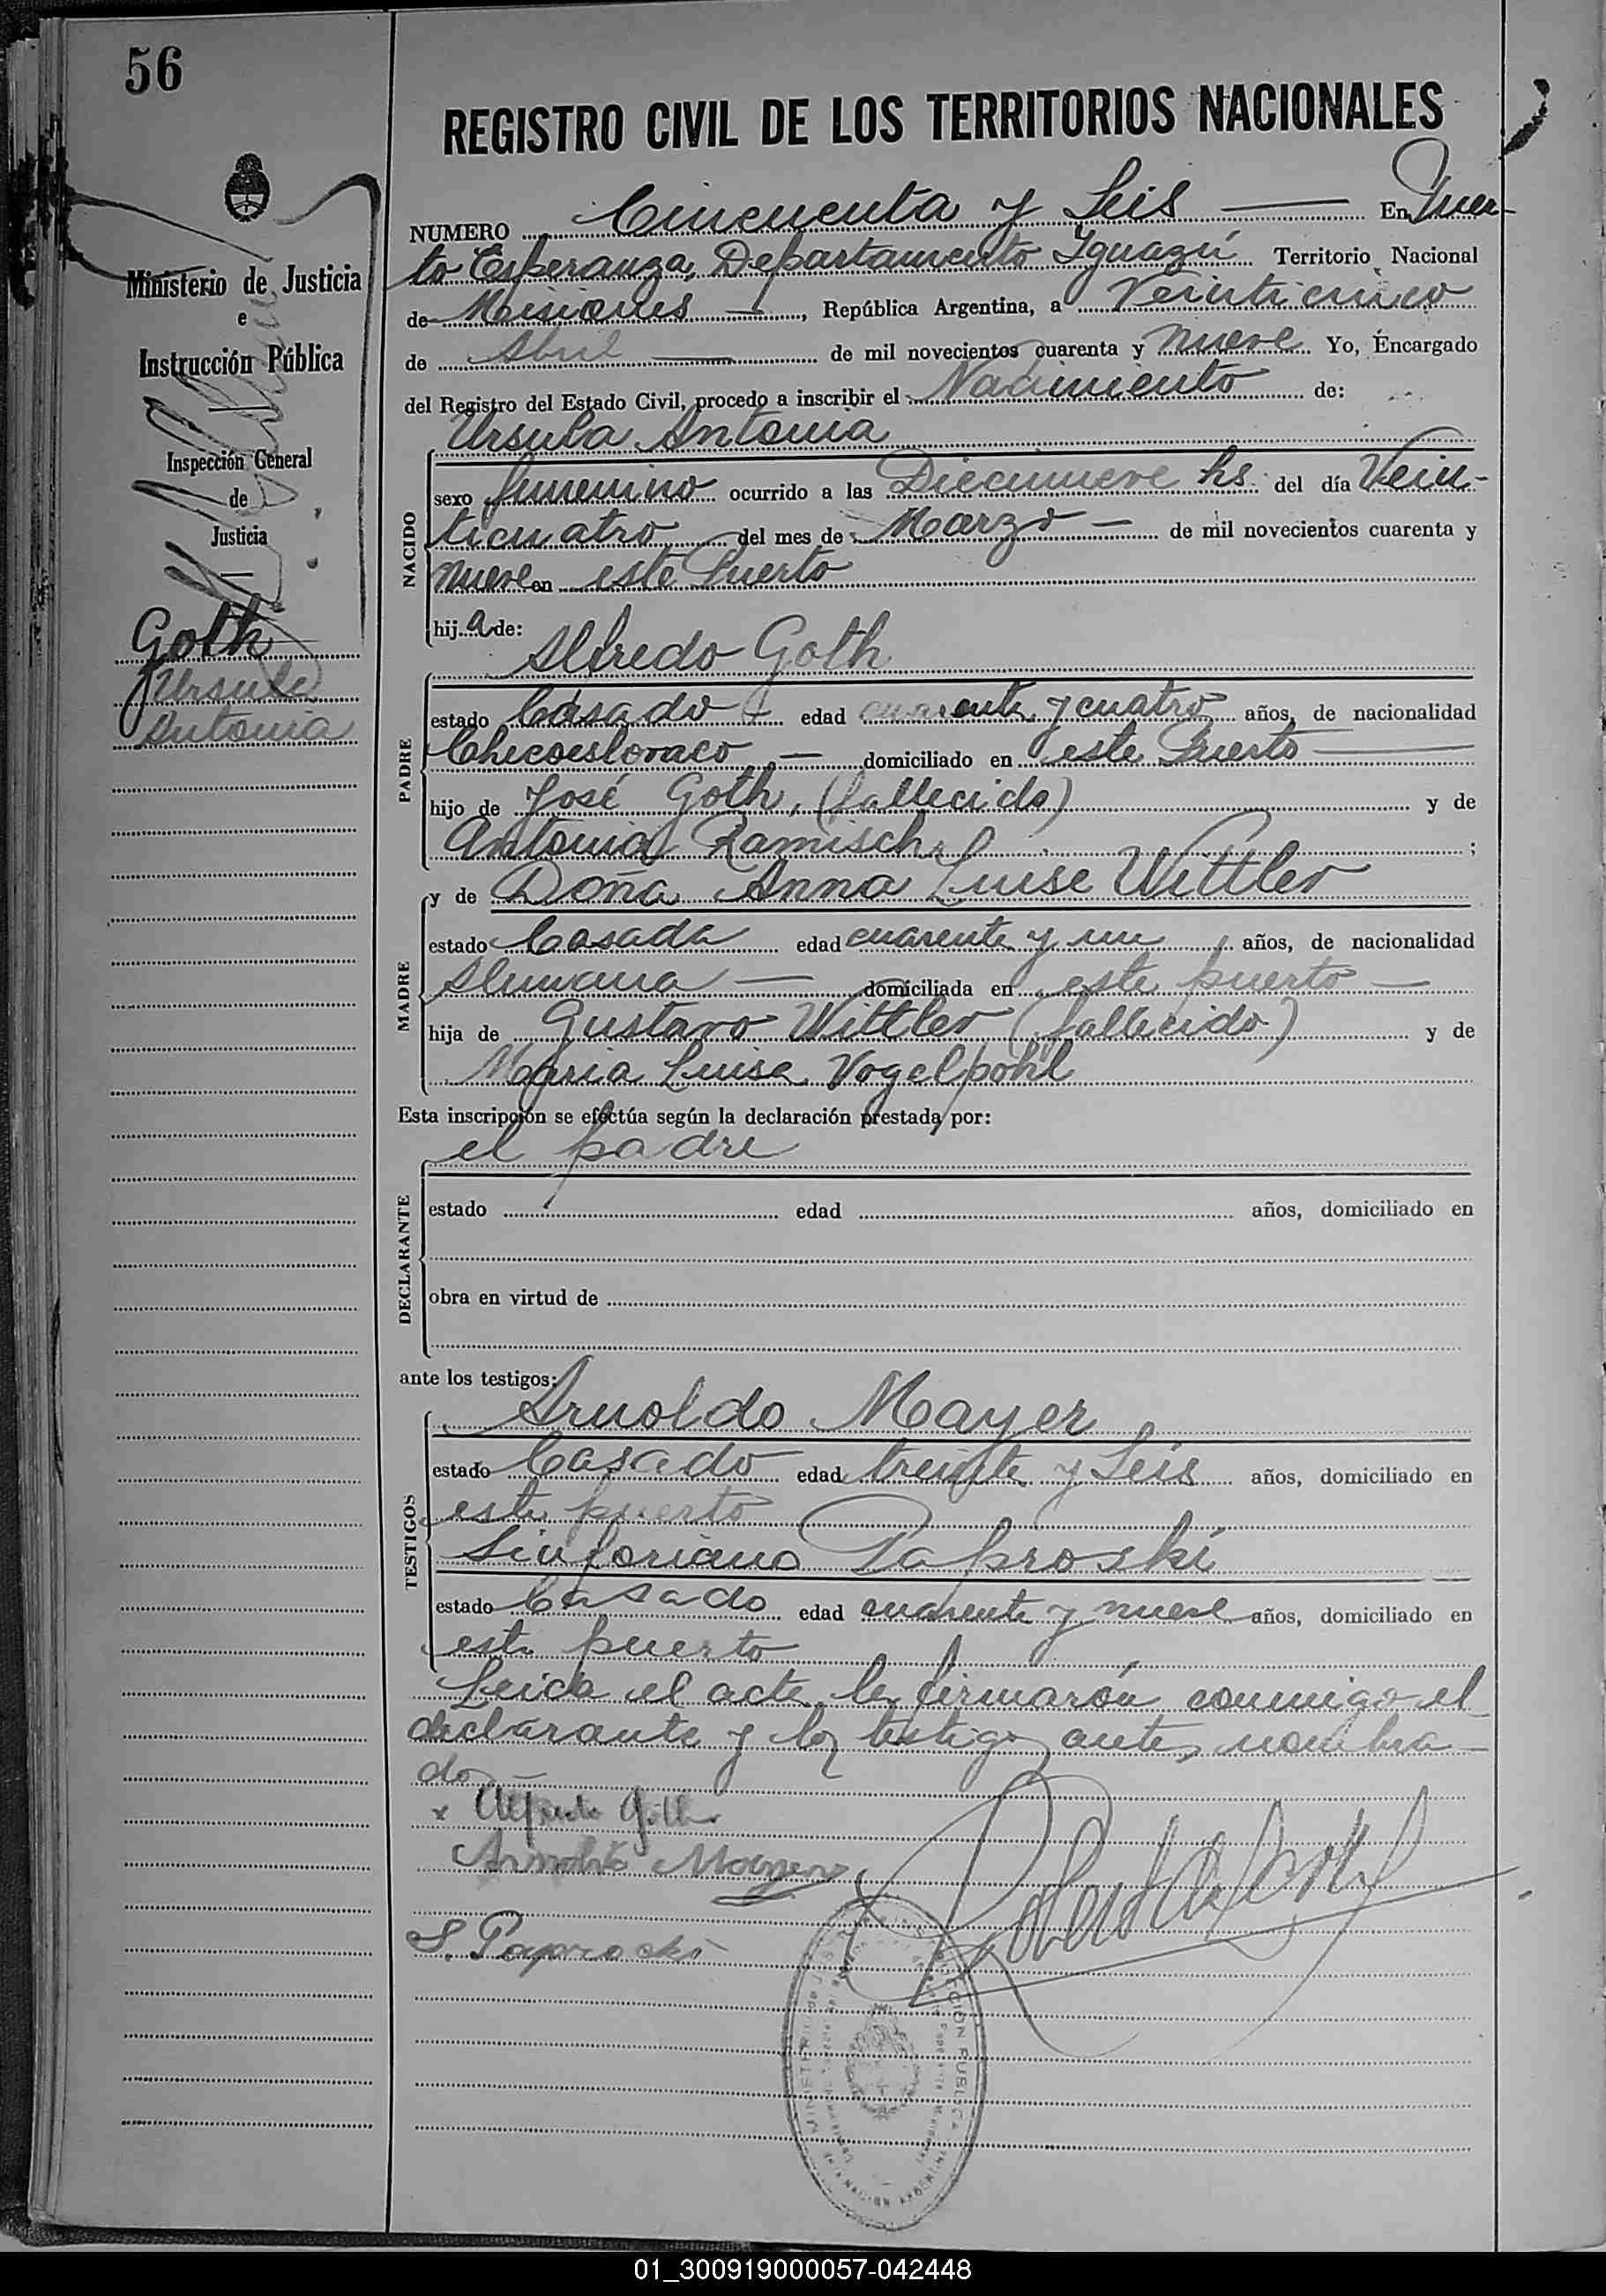 56
REGISTRO CIVIL DE LOS TERRITORIOS NACIONALES
NUMERO Cincuenta y Seis En Puer-
to Esperanza, Departamento Iguazú Territorio Nacional
de Misiones, República Argentina, a Veinticinco
de Abril de mil novecientos cuarenta y nueve Yo, Encargado
del Registro del Estado Civil, procedo a inscribir el Nacimiento de:
Ministerio de Justicia
e
Instrucción Pública
Inspección General
de
Justicia
Goth
Ursula
Antonia
Ursula Antonia
NACIDO
sexo femenino ocurrido a las Diecinueve hs. del día Vein-
ticuatro del mes de Marzo de mil novecientos cuarenta y
nueve en este Puerto
hija de:
Alfredo Goth
PADRE
estado Casado edad cuarenta y cuatro años, de nacionalidad
Checoeslovaco domiciliado en este Puerto
hijo de José Goth, (fallecido) y de
Antonia Ramisch;
y de Doña Anna Luise Wittler
MADRE
estado Casada edad cuarenta y un años, de nacionalidad
Alemana domiciliada en este puerto
hija de Gustavo Wittler (fallecido) y de
Maria Luisa Vogelpohl
Esta inscripción se efectúa según la declaración prestada por:
el padre
DECLARANTE
estado edad años, domiciliado en
obra en virtud de
ante los testigos:
Arnoldo Mayer
TESTIGOS
estado Casado edad treinta y Seis años, domiciliado en
este puerto
Sinforiano Paproski
estado Casado edad cuarenta y nueve años, domiciliado en
este puerto
Leida el acta, la firmarón conmigo el
declarante y los testigos antes nombra-
dos
x Alfredo Goth
Arnoldo Mayer
S. Paprocki
01_300919000057-042448